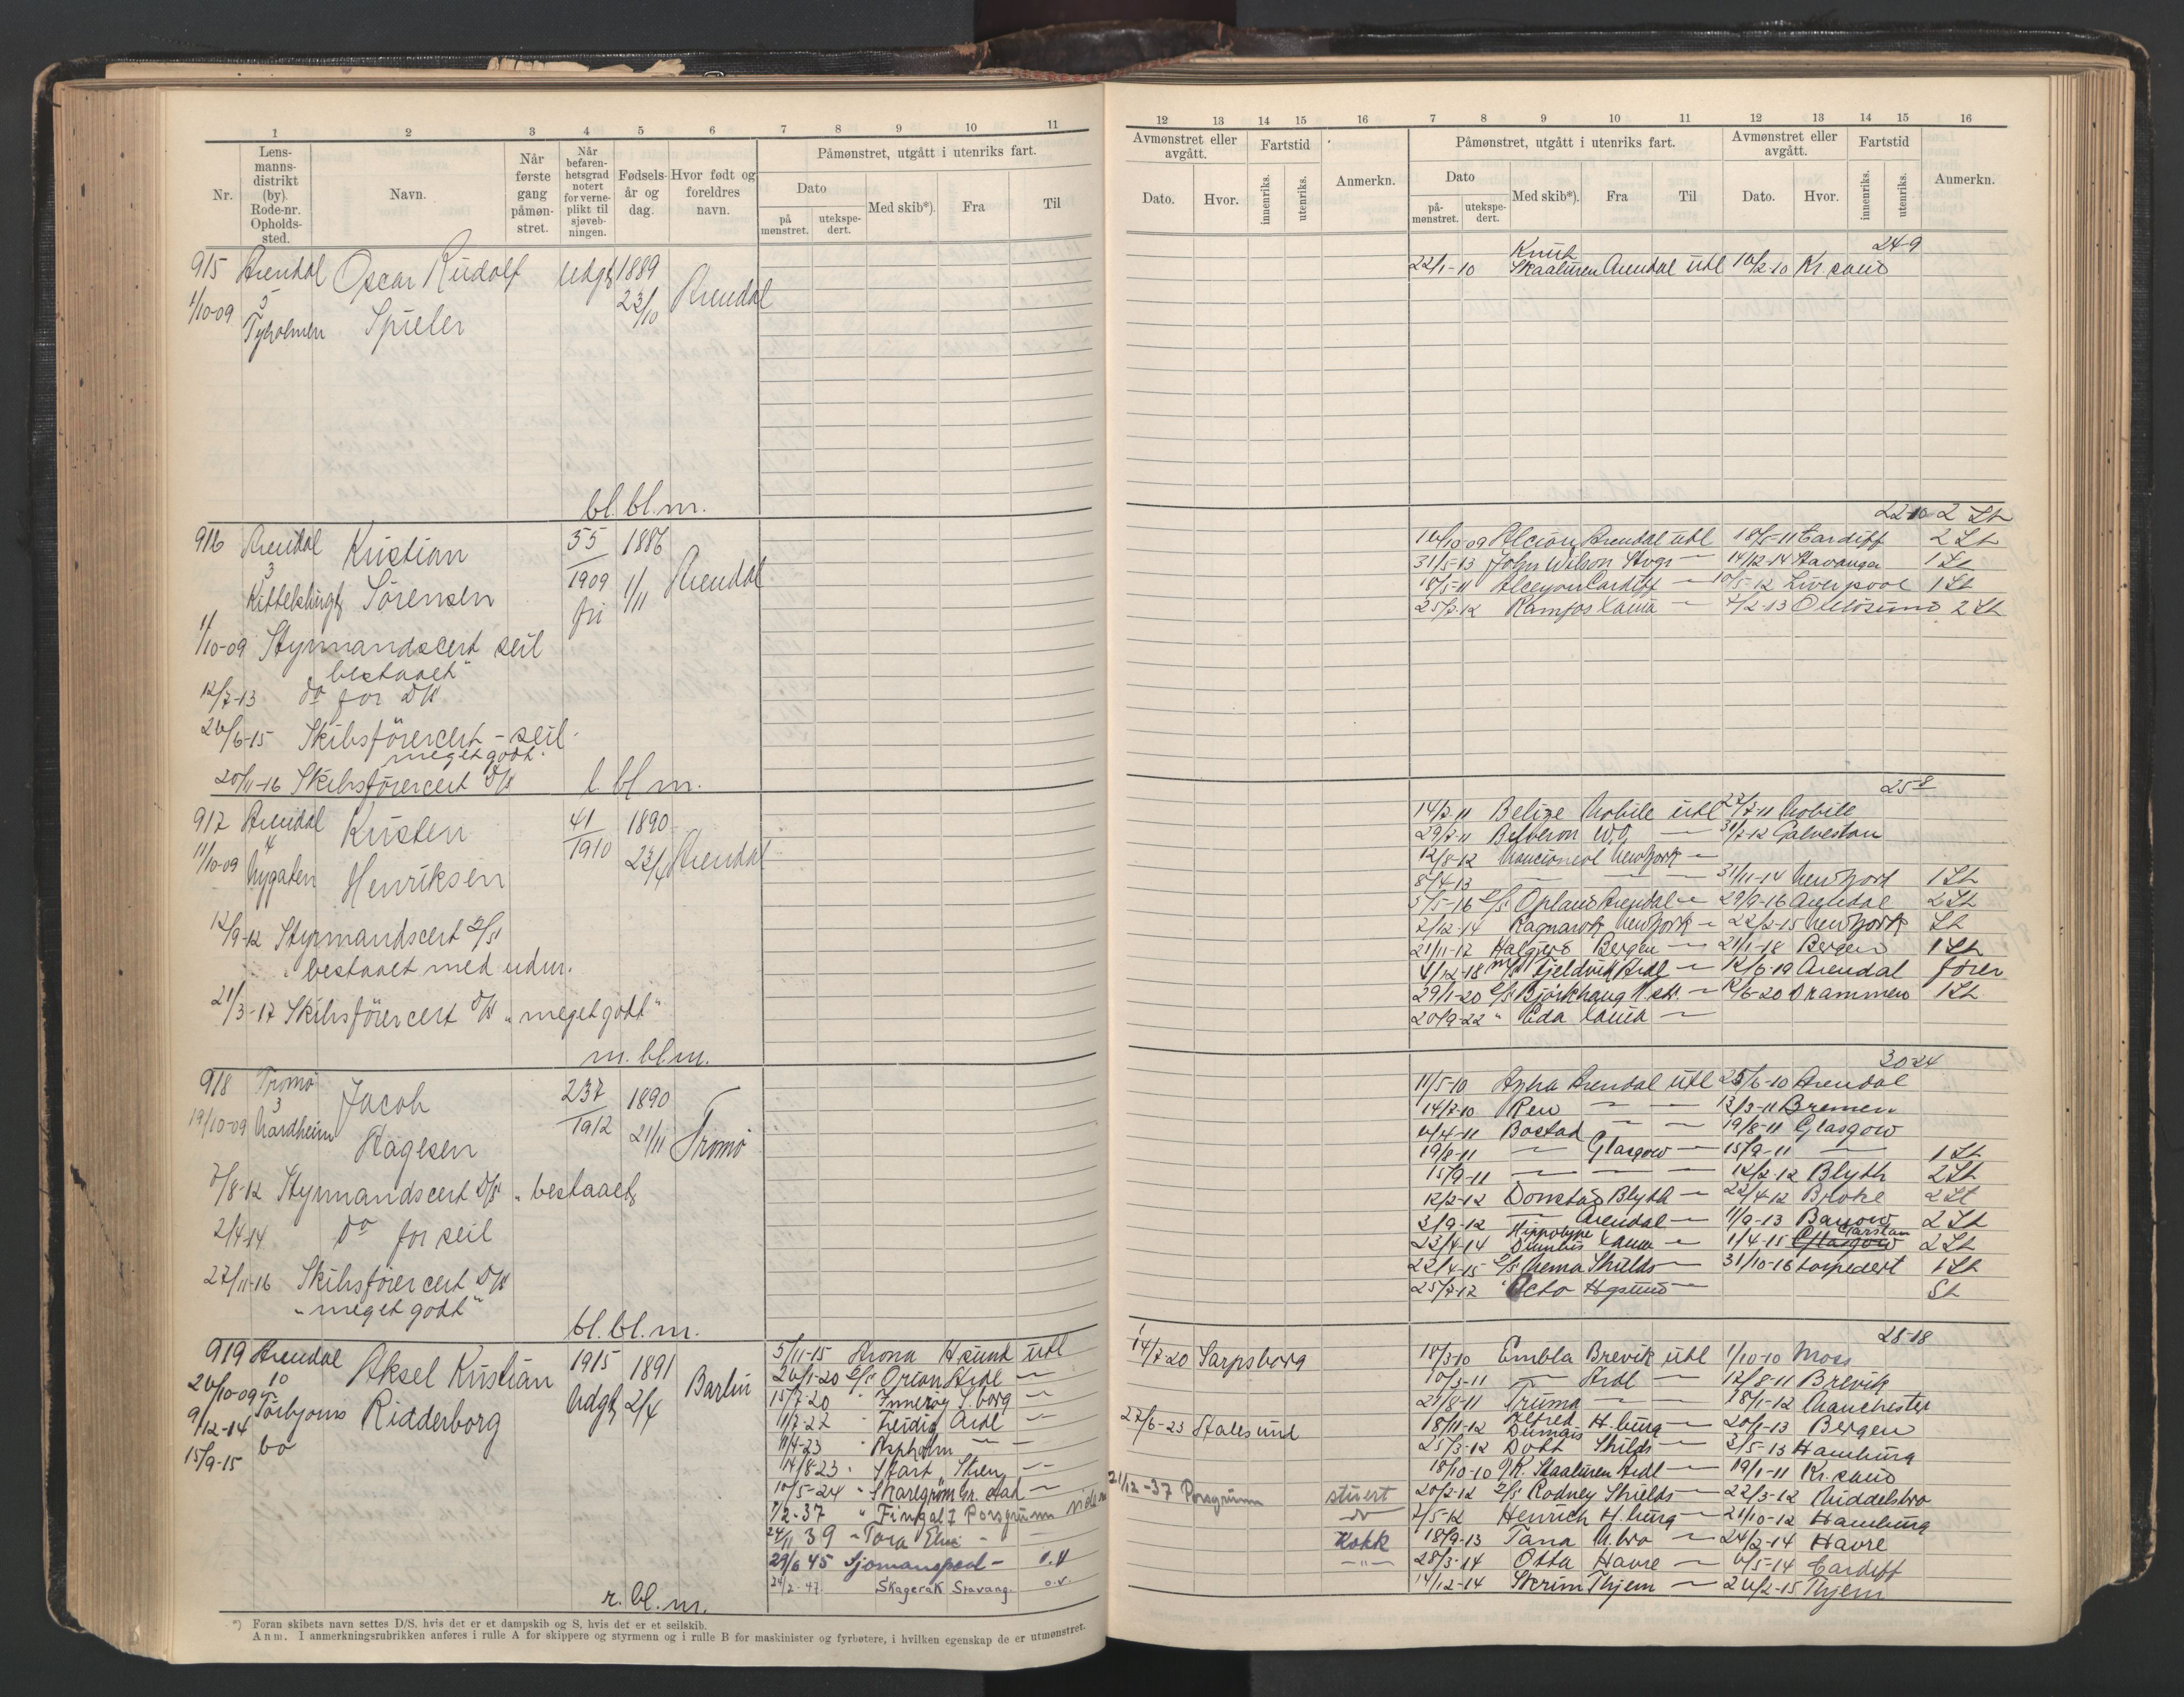 1 2 3 4 5 6 7 8 9 10 11
Nr. Lensmannsdistrikt (by). Rode-nr. Opholdssted. Navn. Når første gang påmønstret. Når befarenhetsgrad notert for verneplikt til sjøvebningen. Fødselsår og dag. Hvor født og foreldres navn. Påmønstret, utgått i utenriks fart.
Dato
på mønstret. utekspedert. Med skib*). Fra Til
915 Arendal Oscar Rudolf Udgt 1889
1/10-09 5 23/10 Arendal
Tyholmen Spieler
bl. bl. m.
916 Arendal Kristian 55 1886
3 1909 1/11 Arendal
Kittelsbugt Sörensen fri
1/10-09 Styrmandscert seil
bestaaet"
12/7-13 do for D/S
26/6-15 Skibsförercert - seil
meget godt.
20/11-16 Skibsförercert D/S l. bl m.
917 Arendal Kristen 41 1890
11/10-09 4 1910 23/4 Arendal
Nygaten Henriksen
12/9-12 Styrmandscert D/S
bestaaet med udm.
21/3-17 Skibsförercert D/S "meget godt"
m. bl. m.
918 Tromö Jacob 237 1890
19/10-09 3 1912 21/11 Tromö
Nardheim Hagesen
7/8-12 Styrmandscert D/S "bestaaet
2/4-14 do for seil
27/11-16 Skibsförercert D/S
"meget godt"
bl. bl. m.
919 Arendal Aksel Kristian 1915 1891 Barbu
26/10-09 10 Udgt 2/4
9/12-14 Torbjørns Ridderborg
15/9-15 bo
5/11-15 Arona H sund utl
26/1-20 D/S Orion Ardl —
15/7-20 " Inneröy S. borg —
11/7-22 " Heidig Ardl —
11/4-23 " Aspholm — —
14/8-23 " Start Skien —
10/5-24 " Skaregrøm Gr. stad —
7/2-37 " Fingal I Porsgrunn
24/11 39 " Tora Elise —
29/6 45 Sjømannspool — o.v
24/2-47 Skagerak Stavang. o.v.
r. bl. m.
*) Foran skibets navn settes D/S, hvis det er et dampskib og S, hvis det er et seilskib.
Anm. I anmerkningsrubrikken anføres i rulle A for skippere og styrmenn og i rulle B for maskinister og fyrbøtere, i hvilken egenskap de er utmønstret.
12 13 14 15 16 7 8 9 10 11 12 13 14 15 16
Avmønstret eller avgått. Fartstid Anmerkn. Påmønstret, utgått i utenriks fart. Avmønstret eller avgått. Fartstid Anmerkn.
Dato. Hvor. innenriks. utenriks. Dato påmønstret. utekspedert. Med skib*). Fra Til Dato. Hvor. innenriks. utenriks.
24-9
22/1-10 Knut Skaaluren Arendal utl 10/2-10 Kr. sand
22-10 2 St
16/10 09 Alcion Arendal utl 18/5-11 Cardiff 2 St
31/5-13 John Wilson Stvgr — 14/12-14 Stavanger 1 St
18/5-11 Alcyon Cardiff — 10/5-12 Liverpool 1 St
25/7-12 Ramfos Laura — 7/2-13 2 St
25-8
14/2-11 Belize Mobile utl 27/7-11 Mobile
29/7-11 — 31/7-12 Galveston
12/8-12 New York —
8/4-13 — — — 31/11-14 New York 1 St
5/5-16 D/S Opland Arendal — 29/9-16 Arendal 2 St
2/12-14 Ragnarok New York — 22/2-15 New York St
21/11-17 Halgjerd Bergen — 21/1-18 Bergen 1 St
4/12-18 Fjeldvik Ardl — 12/6-19 Arendal förer
29/1-20 D/S Björkhaug — 12/6-20 Drammen 1 St
20/9-22 " Eda Laura —
30-24
11/5-10 Arendal utl 25/6-10 Arendal
14/7-10 Ren — — 13/3-11 Bremen
4/4-11 Bostad — — 19/8-11 Glasgow
19/8-11 — Glasgow — 15/9-11 — 1 St
15/9-11 — — — 12/2-12 Blyth 2 St
12/2-12 Blyth — 22/4-12 2 St
3/9-12 — Arendal — 11/9-13 Barrow 2 St
23/4-14 Hippolyte Dumois Laura — 1/4-15 Garston 2 St
22/4-15 D/S Nema Shields — 31/10-16 torpedert 1 St
25/7-17 " Octo Hgsund — St
28-18
14/7-20 Sarpsborg 18/3-10 Embla Brevik utl 1/10-10 Moss
10/3-11 — Ardl — 12/8-11 Brevik
21/8-11 Truma — — 18/1-12 Manchester
27/6-23 Aalesund 18/11-12 Alfred Dumois H. burg — 20/1-13 Bergen
25/3-12 Dott Shilds — 3/5-13 Hamburg
18/10-10 K. Skaaluren Ardl — 19/1-11 Kr. sand
21/12-37 Porsgrunn stuert 20/2-12 D/S Rodney Shields — 22/3-12 Middelsbro
— do — 7/5-12 Henrich H. burg — 21/10-12 Hamburg
Kokk 18/9-13 Tana M. bro — 24/2-14 Havre
— " — 28/3-14 Otta Havre — 6/5-14 Cardiff
14/12-14 Skrim Thjem — 26/2-15 Thjem